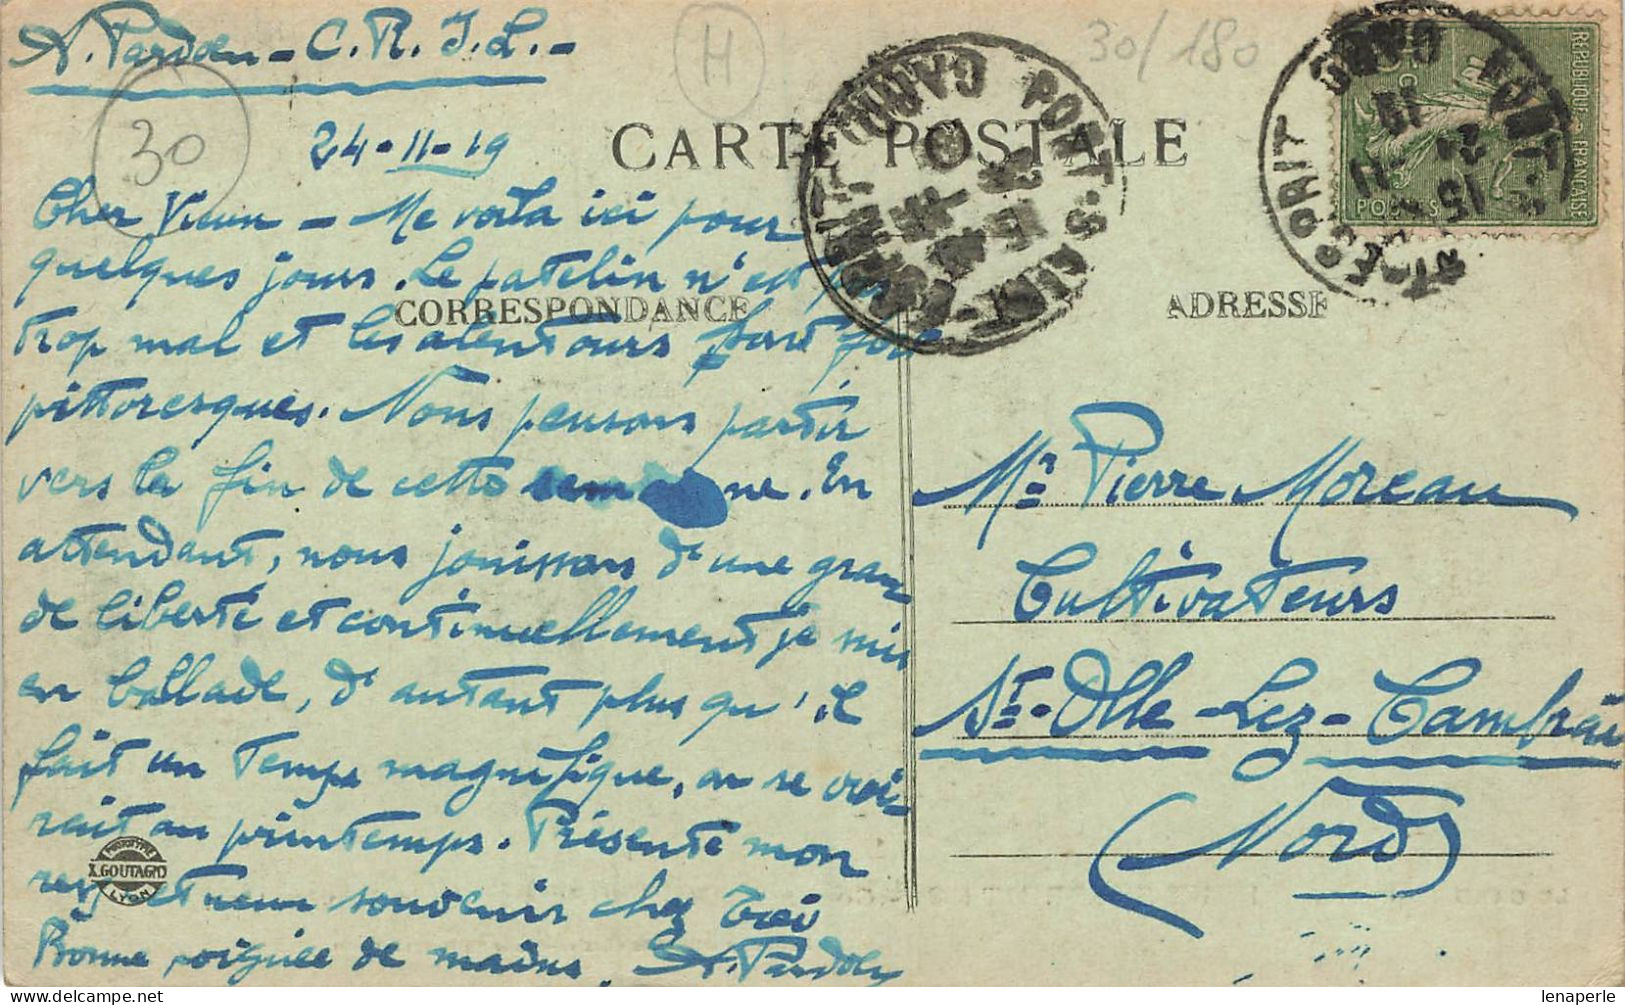 A. Pardoen - C. R. I. L. -
H
30/180
30
24-11-19
CARTE POSTALE
Cher Vieux - Me voila ici pour
quelques jours. Le patelin n'est pas
CORRESPONDANCE
ADRESSE
trop mal et les alentours sont fort
pittoresques. Nous pensons partir
vers la fin de cette semaine. En
attendant, nous jouissons d'une gran
de liberté et continuellement je suis
en ballade, d'autant plus qu'il
fait un temps magnifique, on se croi
rait au printemps. Présente mon
respectueux souvenir chez toi
Bonne poignée de mains. A. Pardoen
PHOTOTYPIE
X.GOUTAGNY
LYON
REPUBLIQUE FRANÇAISE
POSTES
PONT-ST-ESPRIT
GARD
PONT-SAINT-ESPRIT
GARD
Mr Pierre Moreau
Cultivateurs
St-Olle-Lez-Cambrai
(Nord)
lenaperle